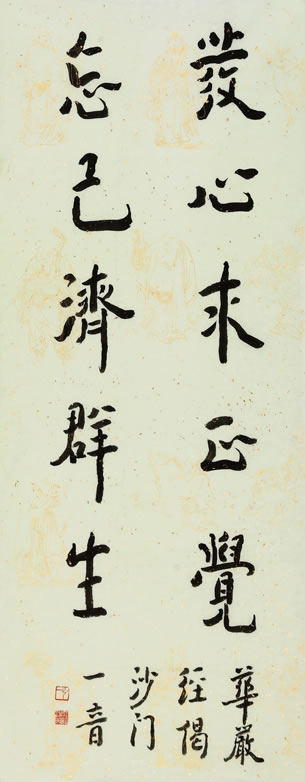 發心求正覺
忘己濟群生
華嚴
經偈
沙门
一音